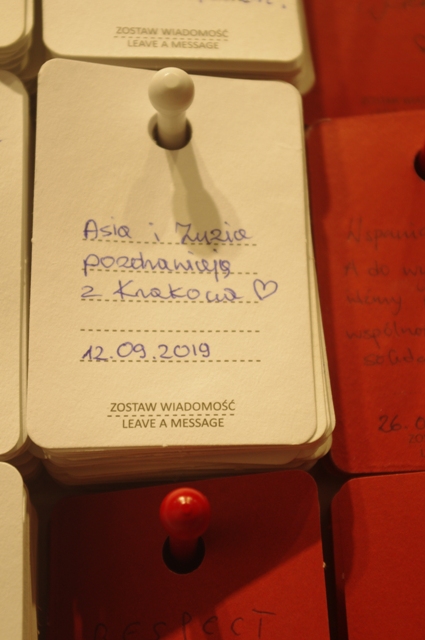 ZOSTAW WIADOMOŚĆ
LEAVE A MESSAGE
Asia i Zuzia
pozdrawiają
z Krakowa ♡
12.09.2019
ZOSTAW WIADOMOŚĆ
LEAVE A MESSAGE
A do
26.0
RESPECT